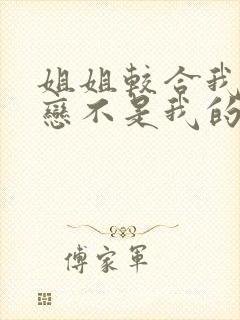 姐姐較合我
戀不是我的
傅家軍